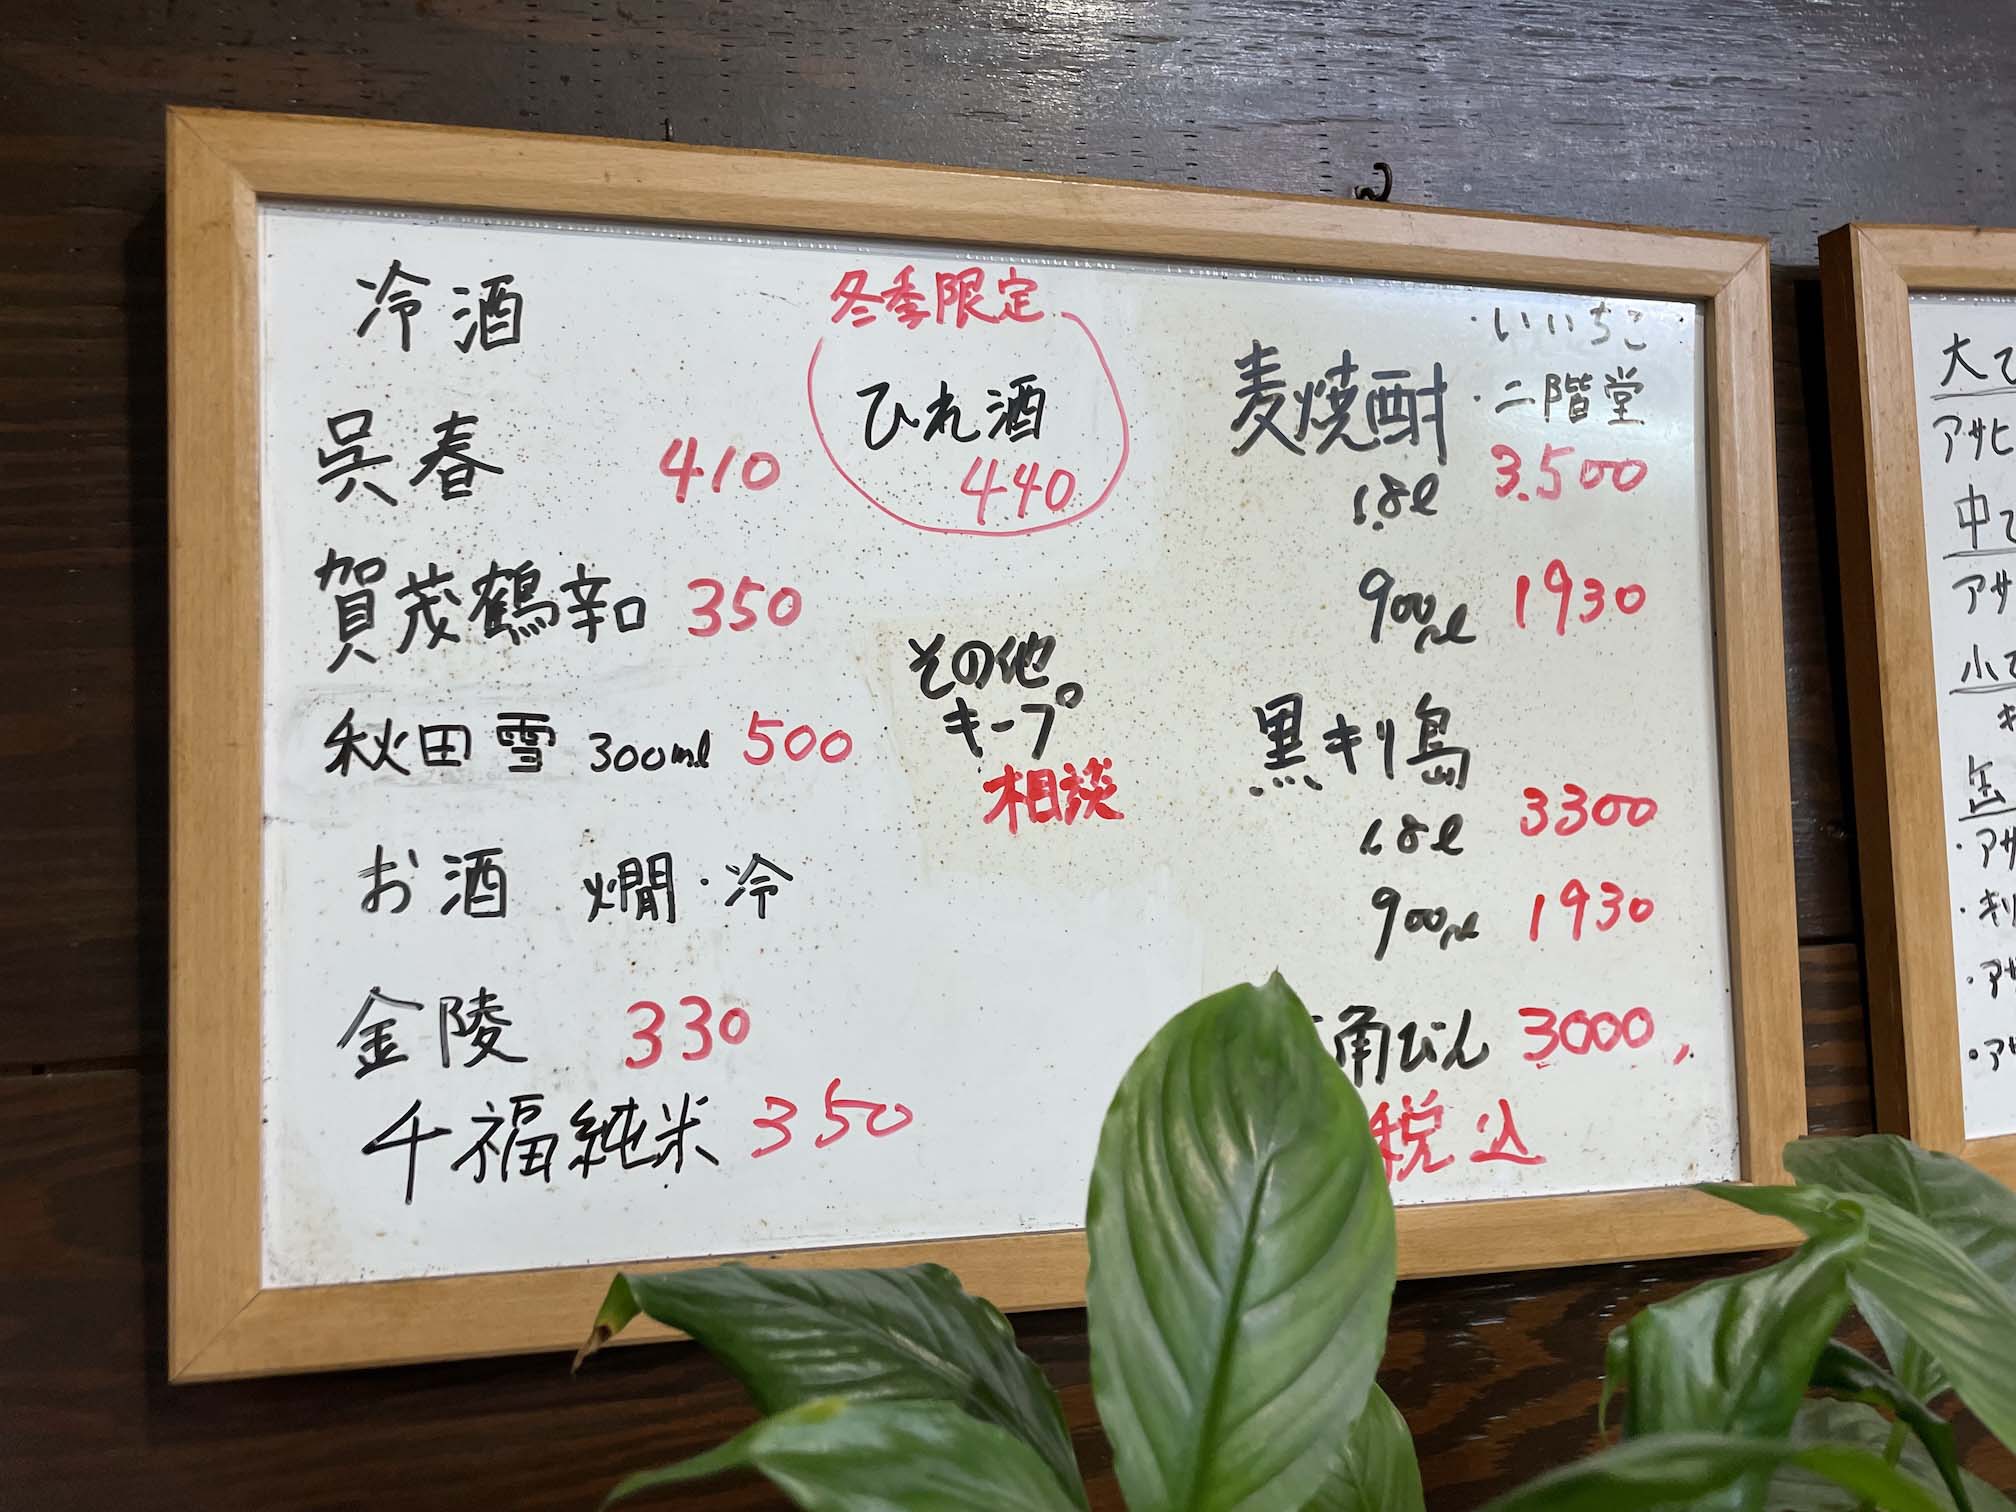 冷酒
呉春 410
賀茂鶴辛口 350
秋田雪 300ml 500
お酒 燗・冷
金陵 330
千福純米 350
冬季限定
ひれ酒
440
その他
キープ
相談
・いいちこ
麦焼酎 ・二階堂
1.8l 3.500
900ml 1930
黒キリ島
1.8l 3300
900ml 1930
角びん 3000
税込
アサヒ
アサ